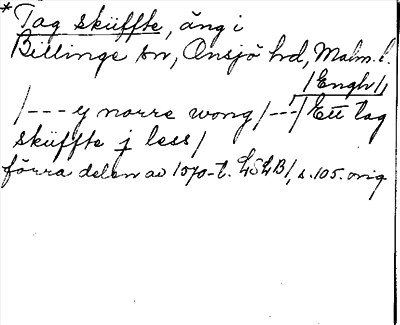 * Tag skiiffte, äng i
Billinge sn, Onsjö hd, Malm. l.
/Engh/,
/--- ey norre wong /---/ Ett tag
skiiffte j less/
förra delen av 1570-t. LSLB/, s. 105. orig